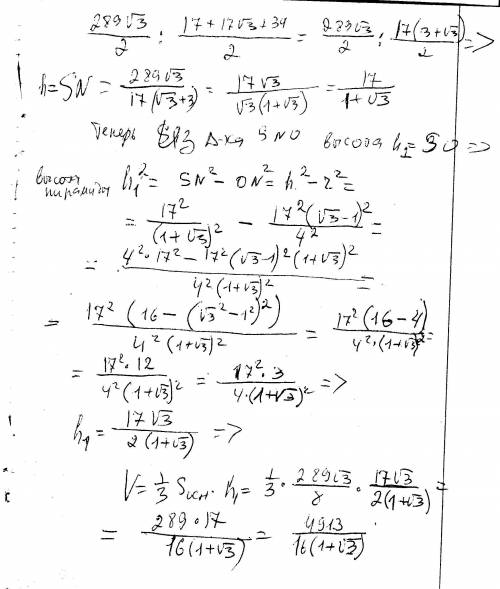 289√3/2 : (17+17√3+34)/2 = 289√3/2 : 17(3+√3)/2 =>
h=SN = 289√3/(17(√3+3)) = 17√3/(√3(1+√3)) = 17/(1+√3)
Теперь из Δ-ка SNO высота h₁=SO =>
высота пирамиды h₁² = SN² - ON² = h² - r² =
= 17²/(1+√3)² - 17²(√3-1)²/4² =
= (4²·17² - 17²(√3-1)²(1+√3)²)/(4²(1+√3)²) =
= 17²(16-(√3²-1²)²)/(4²(1+√3)²) = 17²(16-4)/(4²·(1+√3)²) =
= 17²·12/(4²(1+√3)²) = 17²·3/(4·(1+√3)²) =>
h₁ = 17√3/(2(1+√3)) =>
V = 1/3 Sосн · h₁ = 1/3 · 289√3/8 · 17√3/(2(1+√3)) =
= 289·17/(16(1+√3)) = 4913/(16(1+√3))